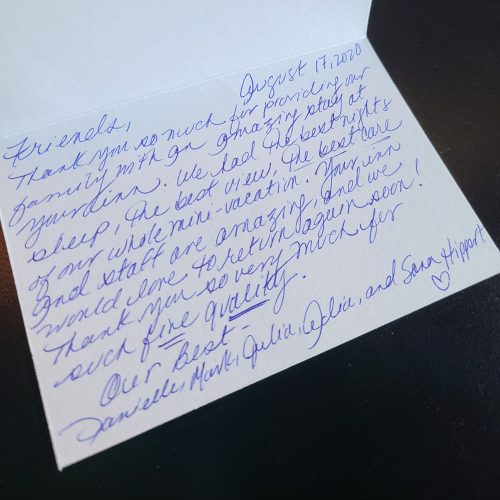 August 17, 2020
Friends,
Thank you so much for providing our
family with an amazing stay at
your inn. We had the best nights
sleep, the best view, the best care
of our whole mini-vacation. Your inn
and staff are amazing, and we
would love to return again soon!
Thank you so very much for
such fine quality.
Our Best -
Danielle, Mark, Julia, and Sara